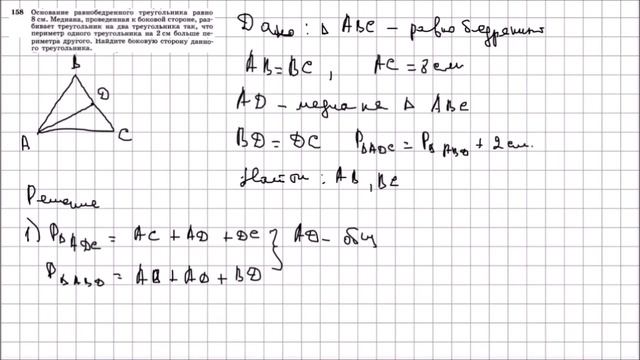 158 Основание равнобедренного треугольника равно
8 см. Медиана, проведенная к боковой стороне, раз-
бивает треугольник на два треугольника так, что
периметр одного треугольника на 2 см больше пе-
риметра другого. Найдите боковую сторону данно-
го треугольника.
B
D
A
C
Дано: △ ABC – равнобедренный
AB = BC , AC = 8 см
AD – медиана △ ABC
BD = DC P△ADC = P△ABD + 2 см.
Найти : AB , BC
Решение
1) P△ADC = AC + AD + DC } AD – общ
P△ABD = AB + AD + BD